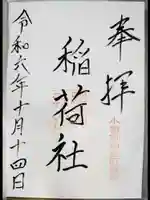 奉拝
稲荷社
令和六年十月十四日